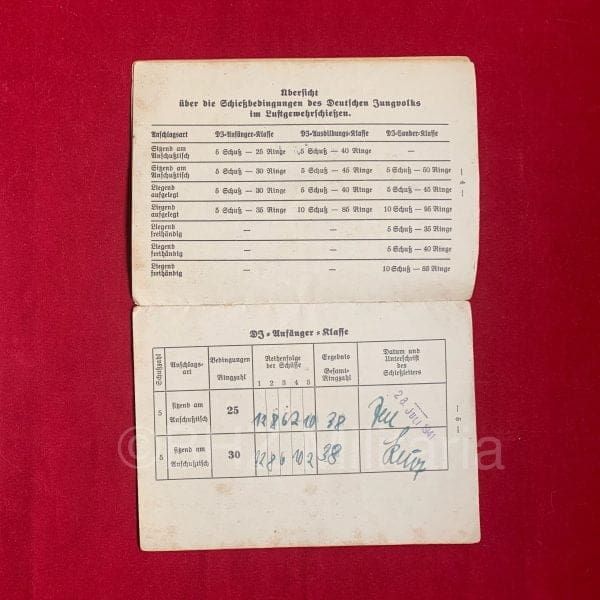 Übersicht
über die Schießbedingungen des Deutschen Jungvolks
im Luftgewehrschießen.
Anschlagsart DJ-Anfänger-Klasse DJ-Ausbildungs-Klasse DJ-Sonder-Klasse
Sitzend am
Anschußtisch 5 Schuß — 25 Ringe 5 Schuß — 40 Ringe —
Sitzend am
Anschußtisch 5 Schuß — 30 Ringe 5 Schuß — 45 Ringe 5 Schuß — 50 Ringe
Liegend
aufgelegt 5 Schuß — 30 Ringe 5 Schuß — 40 Ringe 5 Schuß — 45 Ringe
Liegend
aufgelegt 5 Schuß — 35 Ringe 10 Schuß — 85 Ringe 10 Schuß — 95 Ringe
Liegend
freihändig — — 5 Schuß — 35 Ringe
Liegend
freihändig — — 5 Schuß — 40 Ringe
Liegend
freihändig — — 10 Schuß — 85 Ringe
— 4 —
DJ-Anfänger-Klasse
Schußzahl Anschlags-
art Bedingungen
Ringzahl Reihenfolge
der Schüsse
1 2 3 4 5 Ergebnis
Gesamt-
Ringzahl Datum und
Unterschrift
des
Schießleiters
5 sitzend am
Anschußtisch 25 12 8 6 2 10 38
28. JULI 1941
5 sitzend am
Anschußtisch 30 12 8 6 10 2 38
— 5 —